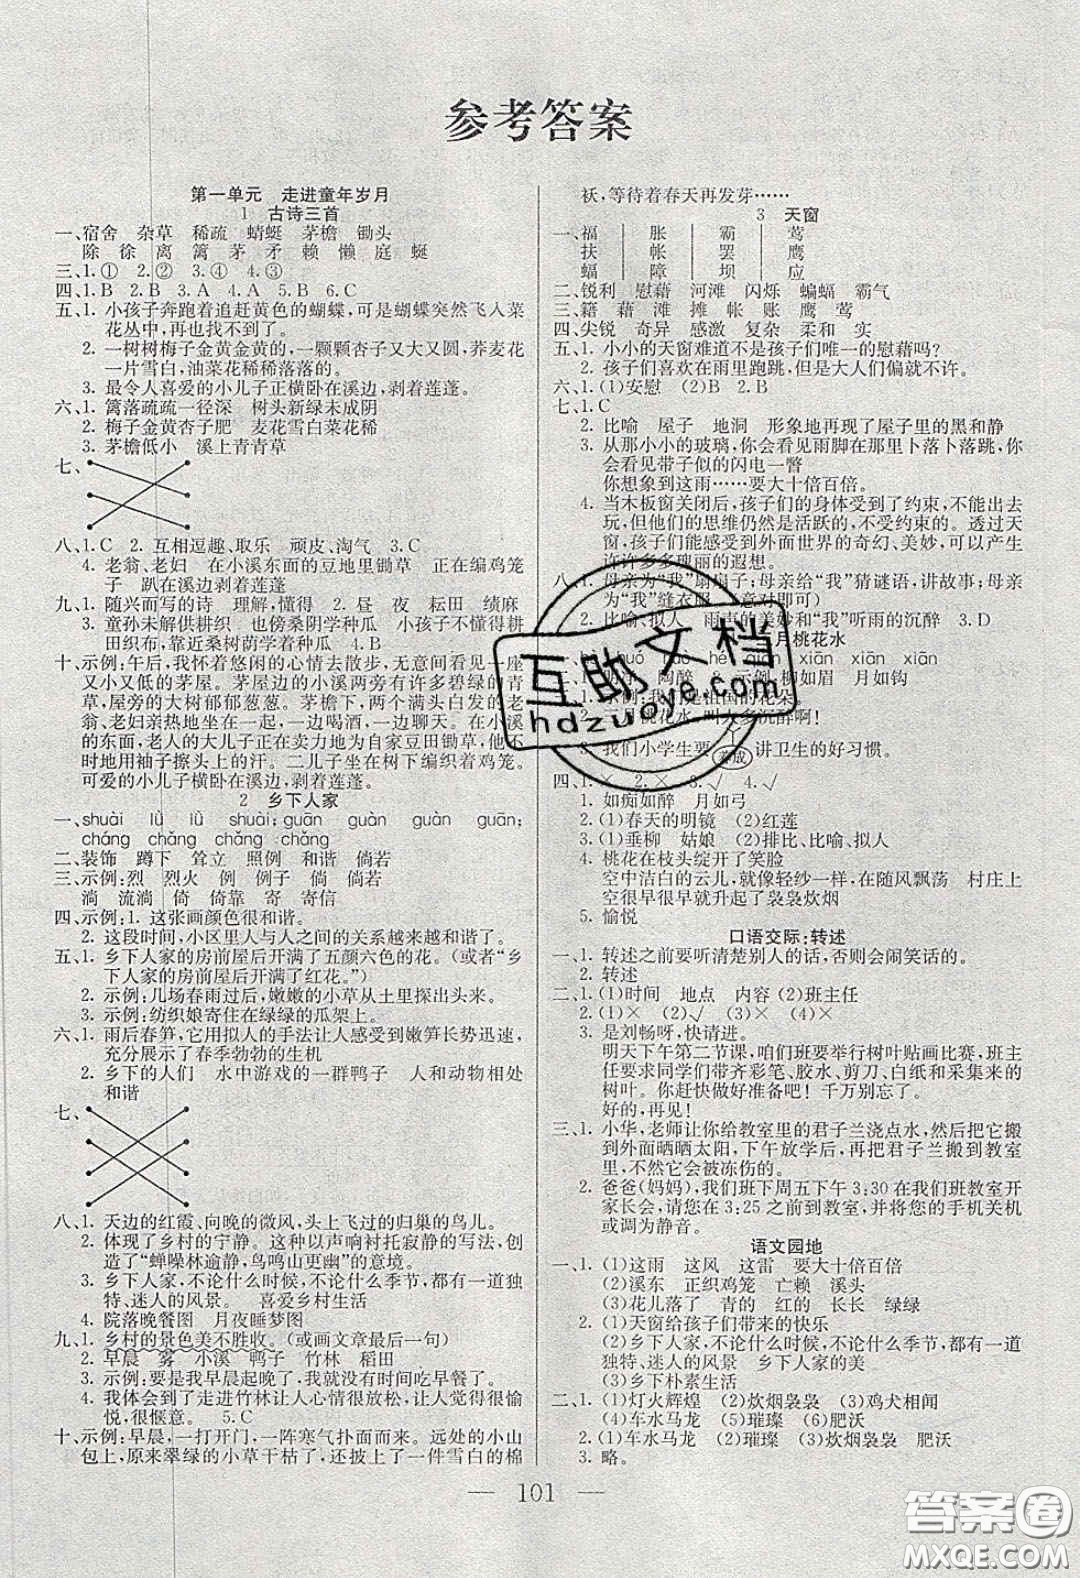 参考答案
第一单元 走进童年岁月
1 古诗三首
一、宿舍 杂草 稀疏 蜻蜓 茅檐 锄头
除 徐 离 篱 茅 矛 赖 懒 庭 蜓
三、1.① 2.② 3.④ 4.③
四、1.B 2.B 3.A 4.A 5.B 6.C
五、1. 小孩子奔跑着追赶黄色的蝴蝶,可是蝴蝶突然飞入菜
花丛中,再也找不到了。
2. 一树树梅子金黄金黄的,一颗颗杏子又大又圆,荞麦花
一片雪白,油菜花稀稀落落的。
3. 最令人喜爱的小儿子正横卧在溪边,剥着莲蓬。
六、1. 篱落疏疏一径深 树头新绿未成阴
2. 梅子金黄杏子肥 麦花雪白菜花稀
3. 茅檐低小 溪上青青草
七、
八、1.C 2. 互相逗趣、取乐 顽皮、淘气 3.C
4. 老翁、老妇 在小溪东面的豆地里锄草 正在编鸡笼
子 趴在溪边剥着莲蓬
九、1. 随兴而写的诗 理解,懂得 2. 昼 夜 耘田 绩麻
3. 童孙未解供耕织 也傍桑阴学种瓜 小孩子不懂得耕
田织布,靠近桑树荫学着种瓜 4.B
十、示例:午后,我怀着悠闲的心情去散步,无意间看见一座
又小又低的茅屋。茅屋边的小溪里有许多碧绿的青
草,屋旁的大树郁郁葱葱。茅檐下,两个满头白发的老
翁、老妇亲热地坐在一起,一边喝酒,一边聊天。在小溪
的东面,老人的大儿子正在卖力地为自家豆田锄草,时不
时地用袖子擦头上的汗。二儿子在树下编织着鸡笼。
可爱的小儿子横卧在溪边,剥着莲蓬。
2 乡下人家
一、shuài lǜ lǜ shuài;guān guàn guàn guān;
cháng chǎng chǎng cháng
二、装饰 蹲下 耸立 照例 和谐 倘若
三、示例:烈 烈火 例 例子 倘 倘若
淌 流淌 倚 倚靠 寄 寄信
四、示例:1. 这张画颜色很和谐。
2. 这段时间,小区里人与人之间的关系越来越和谐了。
五、1. 乡下人家的房前屋后开满了五颜六色的花。(或者“乡
下人家的房前屋后开满了红花。”)
2. 示例:几场春雨过后,嫩嫩的小草从土里探出头来。
3. 示例:纺织娘寄住在绿绿的瓜架上。
六、1. 雨后春笋,它用拟人的手法让人感受到嫩笋长势迅速,
充分展示了春季勃勃的生机
2. 乡下的人们 水中游戏的一群鸭子 人和动物相处
和谐
七、
八、1. 天边的红霞、向晚的微风,头上飞过的归巢的鸟儿。
2. 体现了乡村的宁静。 这种以声响衬托寂静的写法,创
造了“蝉噪林逾静,鸟鸣山更幽”的意境。
3. 乡下人家,不论什么时候,不论什么季节,都有一道独
特、迷人的风景。 喜爱乡村生活
4. 院落晚餐图 月夜睡梦图
九、1. 乡村的景色美不胜收。(或画文章最后一句)
2. 早晨 雾 小溪 鸭子 竹林 稻田
3. 示例:要是我早晨起晚了,我就没有时间吃早餐了。
4. 我体会到了走进竹林让人心情很放松,让人觉得很愉
悦,很惬意。 5.C
十、示例:早晨,一打开门,一阵寒气扑面而来。远处的小山
包上,原来翠绿的小草干枯了,还披上了一件雪白的棉
袄,等待着春天再发芽……
3 天窗
一、福 胀 霸 莺
扶 帐 罢 鹰
蝠 障 坝 应
二、锐利 慰藉 河滩 闪烁 蝙蝠 霸气
三、籍 藉 滩 摊 帐 账 鹰 莺
四、尖锐 奇异 感激 复杂 柔和 实
五、1. 小小的天窗难道不是孩子们唯一的慰藉吗?
2. 孩子们喜欢在雨里跑跳,但是大人们偏就不许。
六、1.(1)安慰 (2)B 2.B
七、1.C
2. 比喻 屋子 地洞 形象地再现了屋子里的黑和静
3. 从那小小的玻璃,你会看见雨脚在那里卜落卜落跳,你
会看见带子似的闪电一瞥
你想象到这雨……要大十倍百倍。
4. 当木板窗关闭后,孩子们的身体受到了约束,不能出去
玩,但他们的思维仍然是活跃的,不受约束的。透过天
窗,孩子们能感受到外面世界的奇幻、美妙,可以产生
许许多多瑰丽的遐想。
八、1. 母亲为“我”扇扇子;母亲给“我”猜谜语,讲故事;母亲
为“我”缝衣服(意对即可)
2. 比喻、拟人 雨声的美妙和“我”听雨的沉醉 3.D
月桃花水
hè qiān xiān xiān
陶醉 示例:柳如眉 月如钩
1. 示例:我们是祖国的花朵。
月桃花水,叫人多沉醉啊!
3. 我们小学生要养成讲卫生的好习惯。
四、1.× 2.× 3.√ 4.√
1. 如痴如醉 月如弓
2.(1)春天的明镜 (2)红莲
3.(1)垂柳 姑娘 (2)排比、比喻、拟人
4. 桃花在枝头绽开了笑脸
空中洁白的云儿,就像轻纱一样,在随风飘荡 村庄上
空很早很早就升起了袅袅炊烟
5. 愉悦
口语交际:转述
一、1. 转述之前要听清楚别人的话,否则会闹笑话的。
2. 转述
二、1.(1)时间 地点 内容 (2)班主任
2.(1)× (2)√ (3)× (4)×
3. 是刘畅呀,快请进。
明天下午第二节课,咱们班要举行树叶贴画比赛,班主任
要求同学们带齐彩笔、胶水、剪刀、白纸和采集来的
树叶。你赶快做好准备吧! 千万别忘了。
好的,再见!
三、1. 小华,老师让你给教室里的君子兰浇点水,然后把它搬
到外面晒晒太阳,下午放学后,再把君子兰搬到教室
里,不然它会被冻伤的。
2. 爸爸(妈妈),我们班下周五下午 3:30 在我们班教室开
家长会,请您在 3:25 之前到教室,并将您的手机关机
或调为静音。
语文园地
一、1.(1)这雨 这风 这雷 要大十倍百倍
(2)溪东 正织鸡笼 亡赖 溪头
(3)花儿落了 青的 红的 长长 绿绿
2.(1)天窗给孩子们带来的快乐
(2)乡下人家,不论什么时候,不论什么季节,都有一道
独特、迷人的风景 乡下人家的美
(3)乡下朴素生活
二、1.(1)灯火辉煌 (2)炊烟袅袅 (3)鸡犬相闻
(4)车水马龙 (5)璀璨 (6)肥沃
2.(1)车水马龙 (2)璀璨 (3)炊烟袅袅 肥沃
3. 略。
101
互助文档
hdzuoye.com
答案圈
MXQE.COM